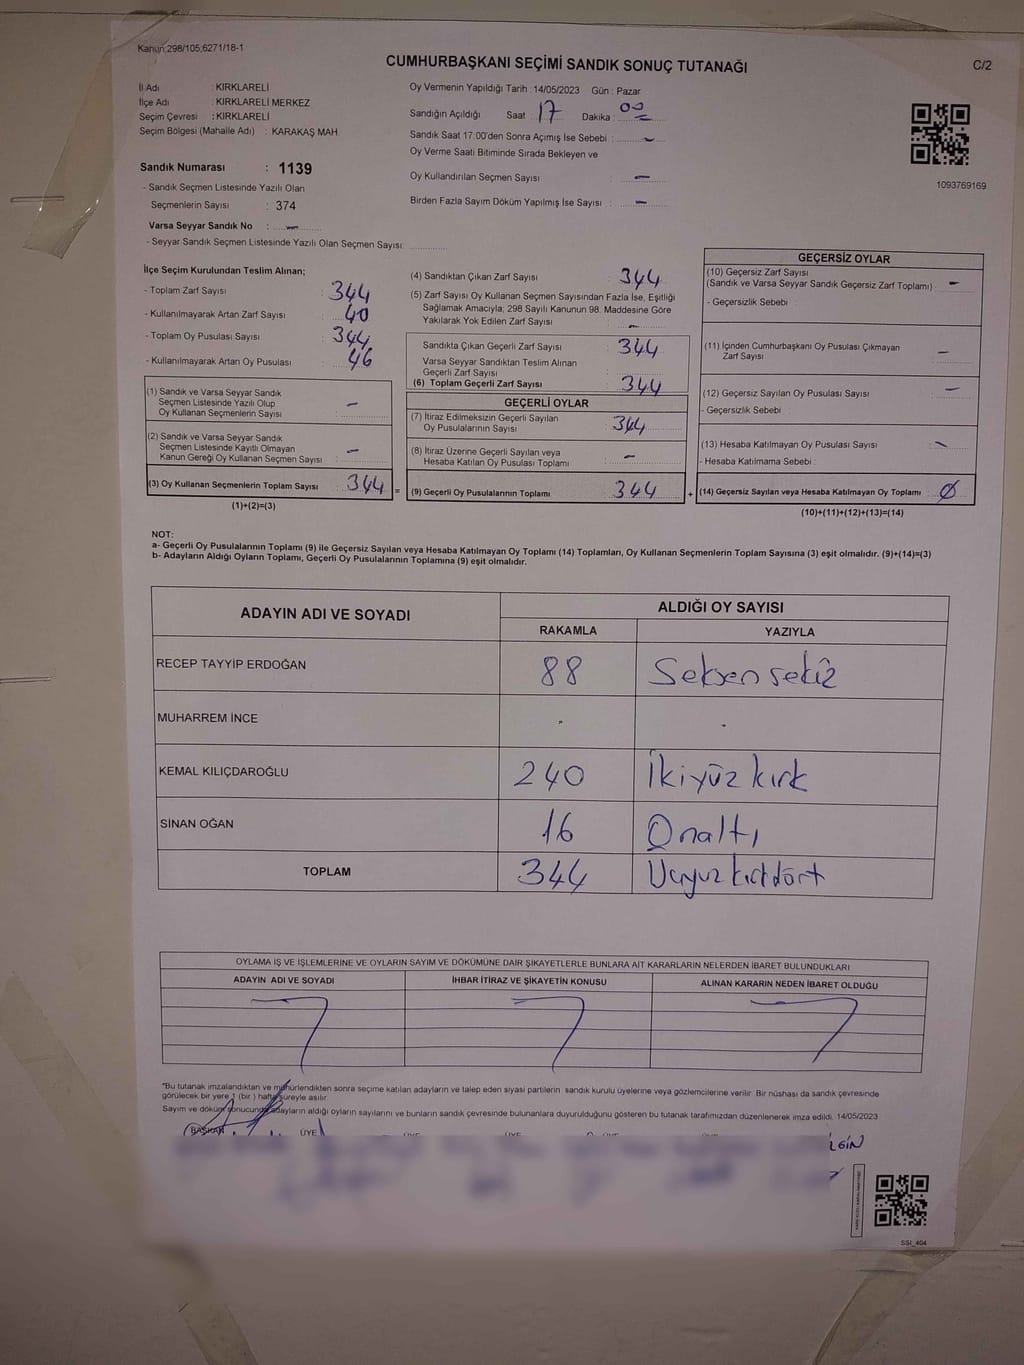 Kanun:298/105,6271/18-1
CUMHURBAŞKANI SEÇİMİ SANDIK SONUÇ TUTANAĞI
C/2
İl Adı : KIRKLARELİ
İlçe Adı : KIRKLARELİ MERKEZ
Seçim Çevresi : KIRKLARELİ
Seçim Bölgesi (Mahalle Adı) : KARAKAŞ MAH.
Sandık Numarası : 1139
- Sandık Seçmen Listesinde Yazılı Olan
Seçmenlerin Sayısı : 374
Varsa Seyyar Sandık No : -
- Seyyar Sandık Seçmen Listesinde Yazılı Olan Seçmen Sayısı:
Oy Vermenin Yapıldığı Tarih : 14/05/2023 Gün : Pazar
Sandığın Açıldığı Saat : 17 Dakika : 00
Sandık Saat 17:00'den Sonra Açımış İse Sebebi : -
Oy Verme Saati Bitiminde Sırada Bekleyen ve
Oy Kullandırılan Seçmen Sayısı : -
Birden Fazla Sayım Döküm Yapılmış İse Sayısı : -
1093769169
İlçe Seçim Kurulundan Teslim Alınan;
- Toplam Zarf Sayısı : 344
- Kullanılmayarak Artan Zarf Sayısı : 40
- Toplam Oy Pusulası Sayısı : 344
- Kullanılmayarak Artan Oy Pusulası : 46
(1) Sandık ve Varsa Seyyar Sandık
Seçmen Listesinde Yazılı Olup
Oy Kullanan Seçmenlerin Sayısı : -
(2) Sandık ve Varsa Seyyar Sandık
Seçmen Listesinde Kayıtlı Olmayan
Kanun Gereği Oy Kullanan Seçmen Sayısı : -
(3) Oy Kullanan Seçmenlerin Toplam Sayısı 344 =
(1)+(2)=(3)
(4) Sandıktan Çıkan Zarf Sayısı : 344
(5) Zarf Sayısı Oy Kullanan Seçmen Sayısından Fazla İse, Eşitliği
Sağlamak Amacıyla; 298 Sayılı Kanunun 98. Maddesine Göre
Yakılarak Yok Edilen Zarf Sayısı : -
Sandıkta Çıkan Geçerli Zarf Sayısı : 344
Varsa Seyyar Sandıktan Teslim Alınan
Geçerli Zarf Sayısı
(6) Toplam Geçerli Zarf Sayısı : 344
GEÇERLİ OYLAR
(7) İtiraz Edilmeksizin Geçerli Sayılan
Oy Pusulalarının Sayısı : 344
(8) İtiraz Üzerine Geçerli Sayılan veya
Hesaba Katılan Oy Pusulası Toplamı : -
(9) Geçerli Oy Pusulalarının Toplamı : 344 +
GEÇERSİZ OYLAR
(10) Geçersiz Zarf Sayısı
(Sandık ve Varsa Seyyar Sandık Geçersiz Zarf Toplamı) : -
- Geçersizlik Sebebi :
(11) İçinden Cumhurbaşkanı Oy Pusulası Çıkmayan
Zarf Sayısı : -
(12) Geçersiz Sayılan Oy Pusulası Sayısı : -
- Geçersizlik Sebebi :
(13) Hesaba Katılmayan Oy Pusulası Sayısı : -
- Hesaba Katılmama Sebebi :
(14) Geçersiz Sayılan veya Hesaba Katılmayan Oy Toplamı : Ø
(10)+(11)+(12)+(13)=(14)
NOT:
a- Geçerli Oy Pusulalarının Toplamı (9) ile Geçersiz Sayılan veya Hesaba Katılmayan Oy Toplamı (14) Toplamları, Oy Kullanan Seçmenlerin Toplam Sayısına (3) eşit olmalıdır. (9)+(14)=(3)
b- Adayların Aldığı Oyların Toplamı, Geçerli Oy Pusulalarının Toplamına (9) eşit olmalıdır.
ADAYIN ADI VE SOYADI
ALDIĞI OY SAYISI
RAKAMLA YAZIYLA
RECEP TAYYİP ERDOĞAN 88 Seksen sekiz
MUHARREM İNCE - -
KEMAL KILIÇDAROĞLU 240 İkiyüz kırk
SİNAN OĞAN 16 Onaltı
TOPLAM 344 Üçyüz kırkdört
OYLAMA İŞ VE İŞLEMLERİNE VE OYLARIN SAYIM VE DÖKÜMÜNE DAİR ŞİKAYETLERLE BUNLARA AİT KARARLARIN NELERDEN İBARET BULUNDUKLARI
ADAYIN ADI VE SOYADI İHBAR İTİRAZ VE ŞİKAYETİN KONUSU ALINAN KARARIN NEDEN İBARET OLDUĞU
"Bu tutanak imzalandıktan ve mühürlendikten sonra seçime katılan adayların ve talep eden siyasi partilerin sandık kurulu üyelerine veya gözlemcilerine verilir. Bir nüshası da sandık çevresinde
görülecek bir yere 1 (bir ) hafta süreyle asılır.
Sayım ve döküm sonucunda adayların aldığı oyların sayılarını ve bunların sandık çevresinde bulunanlara duyurulduğunu gösteren bu tutanak tarafımızdan düzenlenerek imza edildi. 14/05/2023
BAŞKAN ÜYE ÜYE ÜYE ÜYE ÜYE
SSI_404